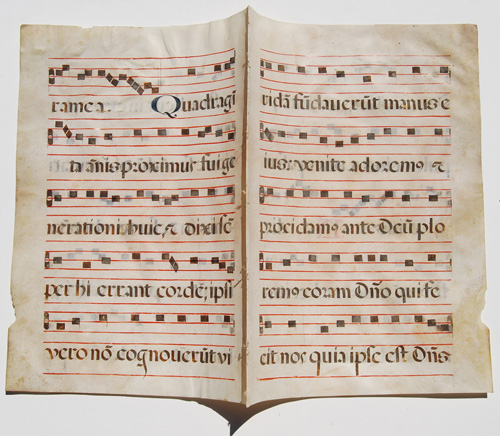 rame a Quadragī
ta añis proximus fui ge
nerationi huic, ⁊ dixi sē
per hi errant corde; ipsi
vero nō cognoverūt vi
ridā fūdaverūt manus e
ius: venite adoremꝰ ⁊
procidamꝰ ante Deū plo
remꝰ coram Dño qui fe
cit nos quia ipse est Dñs